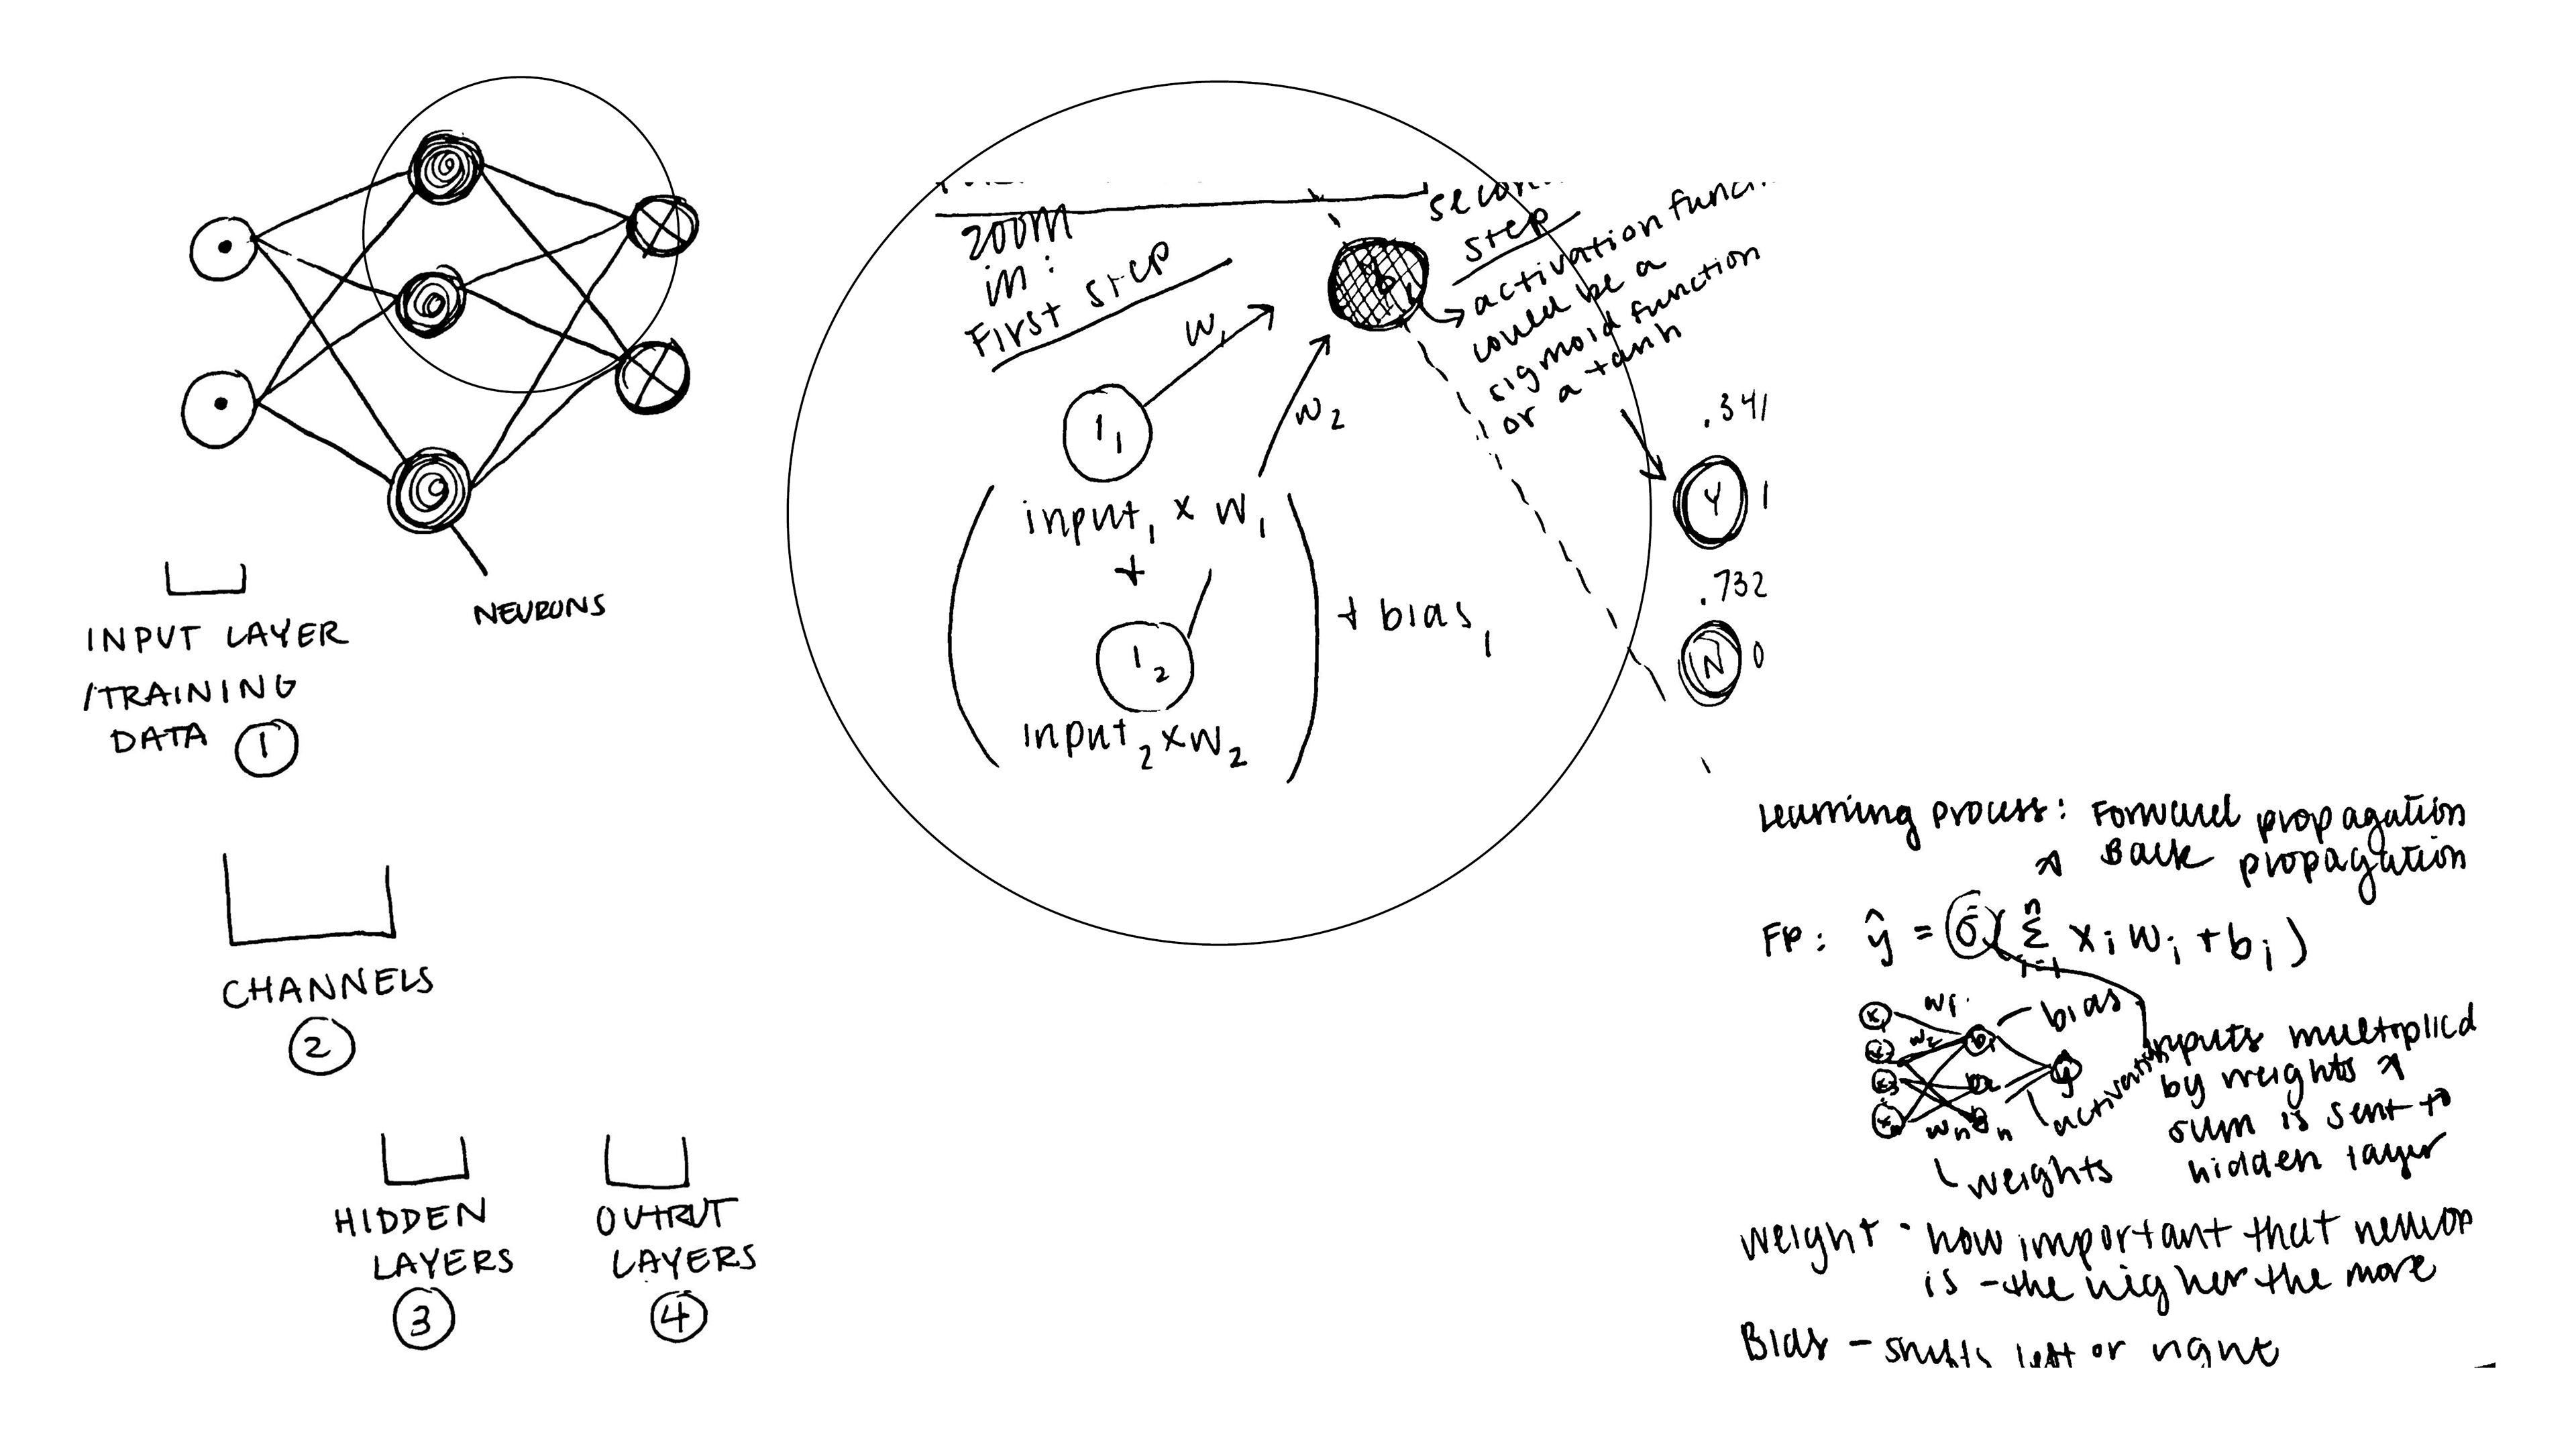 NEURONS
INPUT LAYER
/TRAINING
DATA 1
CHANNELS
2
HIDDEN
LAYERS
3
OUTPUT
LAYERS
4
zoom
in:
First step
w1
I1
w2
input1 x w1
+
I2
input2 x w2
+ bias1
step
activation
could be a
sigmoid function
or a tanh
.341
Y 1
.732
N 0
Learning process: Forward propagation
& Back propagation
FP: ŷ = σ( n Σ i=1 xi wi + bi )
x1 w1
bias
x2 w2 b1
x3 b2 ŷ
xn wn bn
activation
weights
inputs multiplied
by weights &
sum is sent to
hidden layer
Weight - how important that neuron
is - the higher the more
Bias - shifts left or right